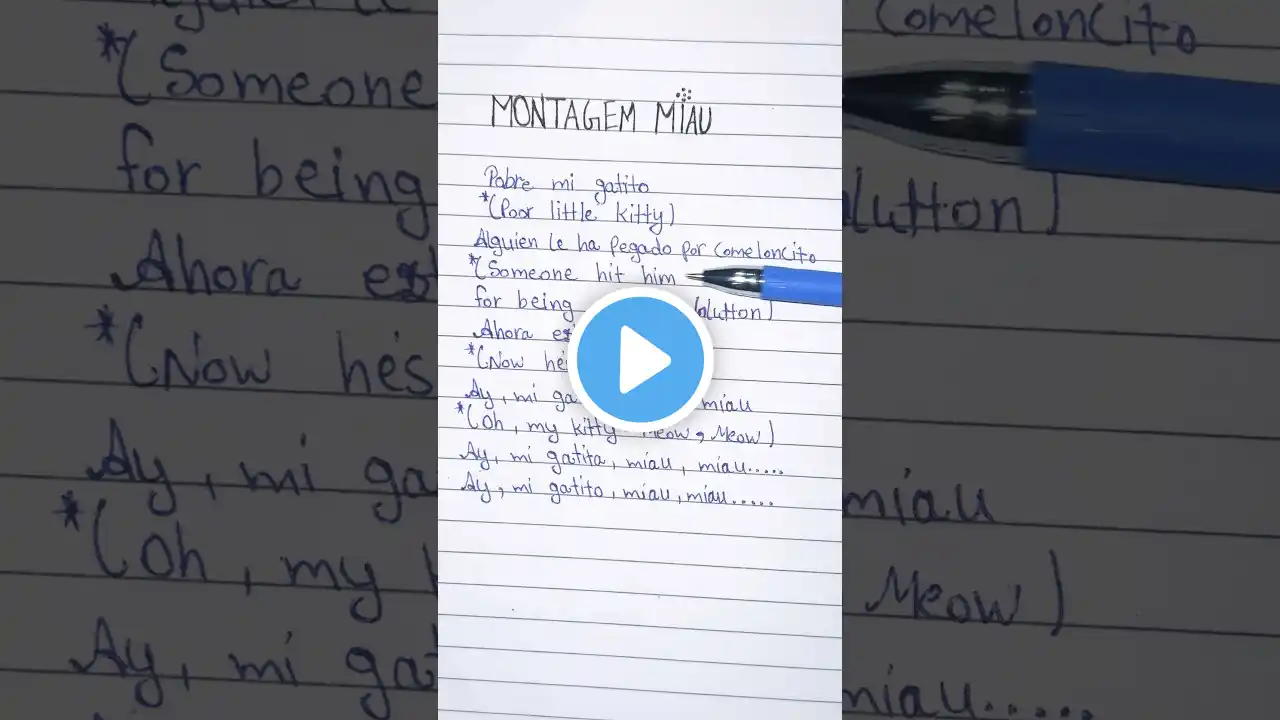 MONTAGEM MIAU
Pobre mi gatito
*(Poor little kitty)
Alguien le ha pegado por comeloncito
*(Someone hit him
for being
Ahora
*(Now he's
Ay, mi miau
*(Oh, my kitty Meow, Meow)
Ay, mi gatita, miau, miau.....
Ay, mi gatito, miau, miau.....